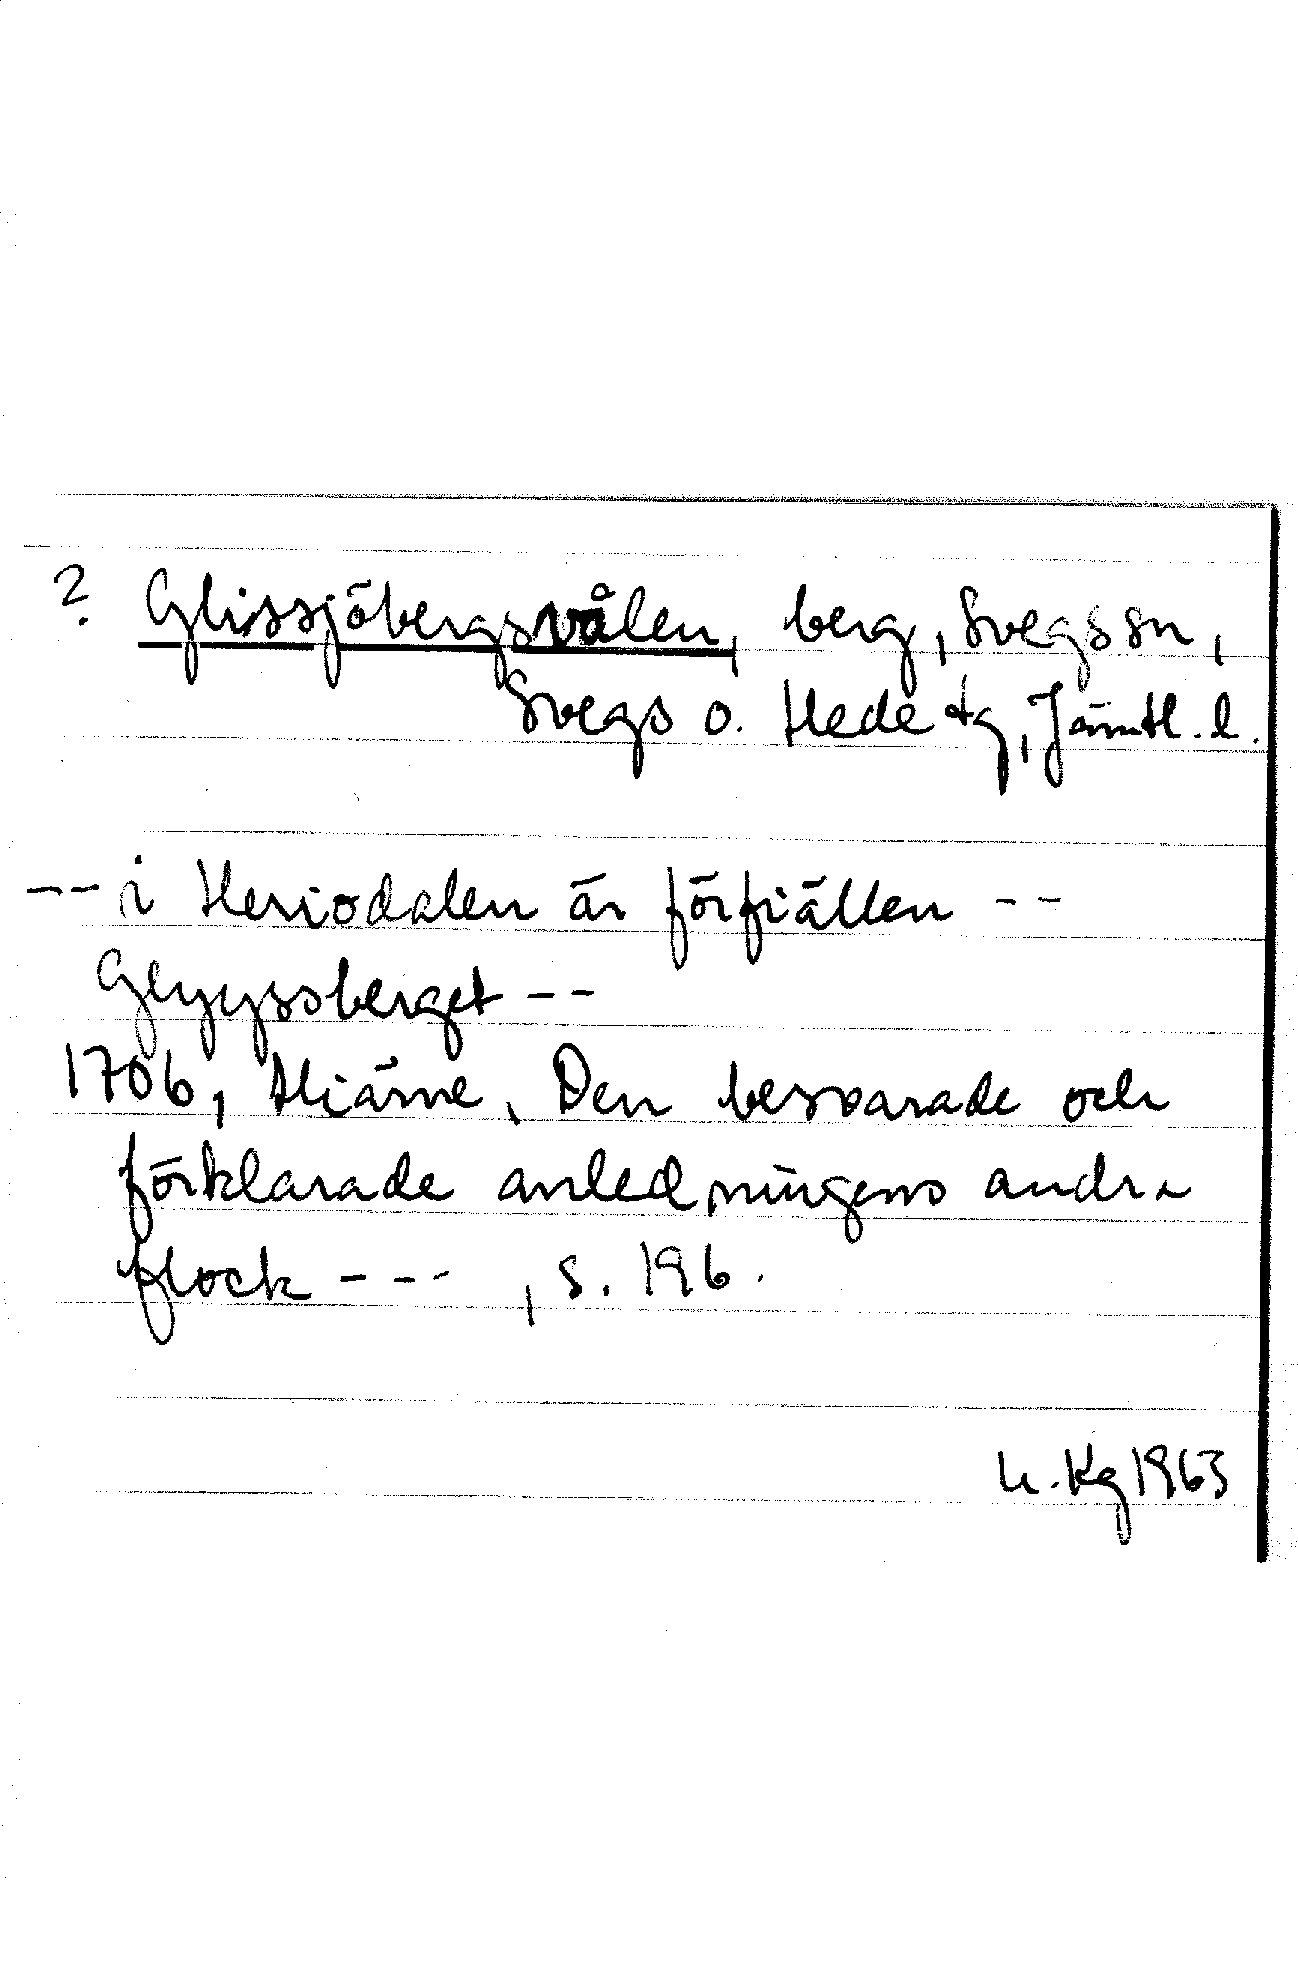 ? Glissjöbergsvålen, berg, Svegs sn,
Svegs o. Hede tg, Jämtl. l.
-- i Heriodalen är förfiällen --
Glyyssberget --
1706, Hiärne, Den besvarade och
förklarade anledningens andra
flock --- , s. 196.
U. Kg 1963